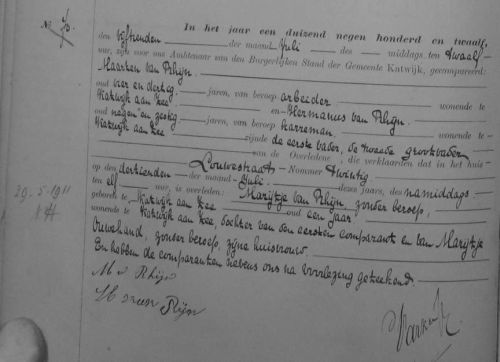 No 75.
In het jaar een duizend negen honderd en twaalf,
den vijftienden der maand Juli des middags ten twaalf
ure, zijn voor ons Ambtenaar van den Burgerlijken Stand der Gemeente Katwijk, gecompareerd:
Maarten van Rhijn
oud vier en dertig jaren, van beroep arbeider wonende te
Katwijk aan Zee en Hermanus van Rhijn
oud negen en zestig jaren, van beroep karreman wonende te
Katwijk aan Zee zijnde de eerste vader, de tweede grootvader
van de Overledene, die verklaarden dat in het huis
Louwestraat Nommer twintig
op den dertienden der maand Juli dezes jaars, des namiddags
ten elf ure is overleden: Marijtje van Rhijn, zonder beroep,
geboren te Katwijk aan Zee oud een jaar
wonende te Katwijk aan Zee, dochter van den eersten comparant en van Marijtje
Ouwehand, zonder beroep, zijne huisvrouw.
En hebben de comparanten nevens ons na voorlezing geteekend.
29-5-1911
KH
M v Rhijn
H van Rijn